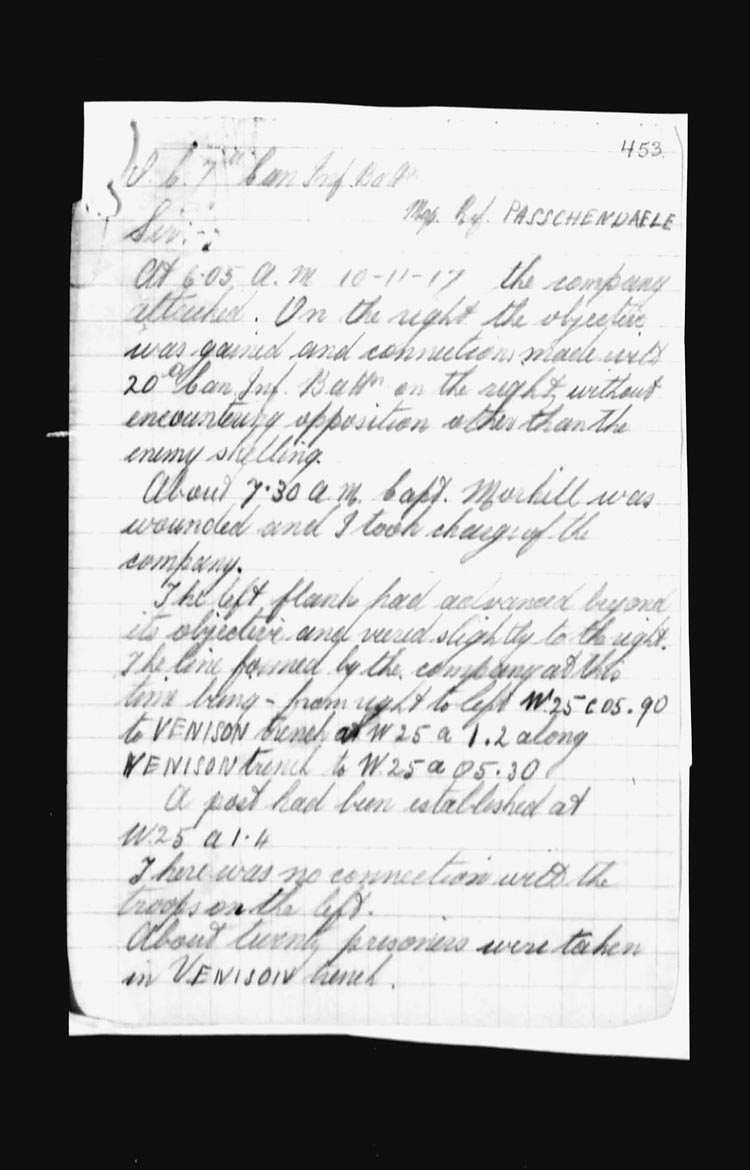 453
O. C. 7th Can Inf Battn
Map. Ref. PASSCHENDAELE
Sir:-
At 6.05 A.M 10-11-17 the company
attacked. On the right the objective
was gained and connections made with
20th Can Inf. Battn on the right, without
encountering opposition other than the
enemy shelling.
About 7.30 A.M. Capt. was
wounded and I took charge of the
company.
The left flank had advanced beyond
its objective and veered slightly to the right.
The line formed by the company at this
time being - from right to left W25 c 05.90
to VENISON trench at W25 a 1.2 along
VENISON trench to W25 a 05.30
A post had been established at
W25 a 1.4
There was no connection with the
troops on the left.
About twenty prisoners were taken
in VENISON trench.